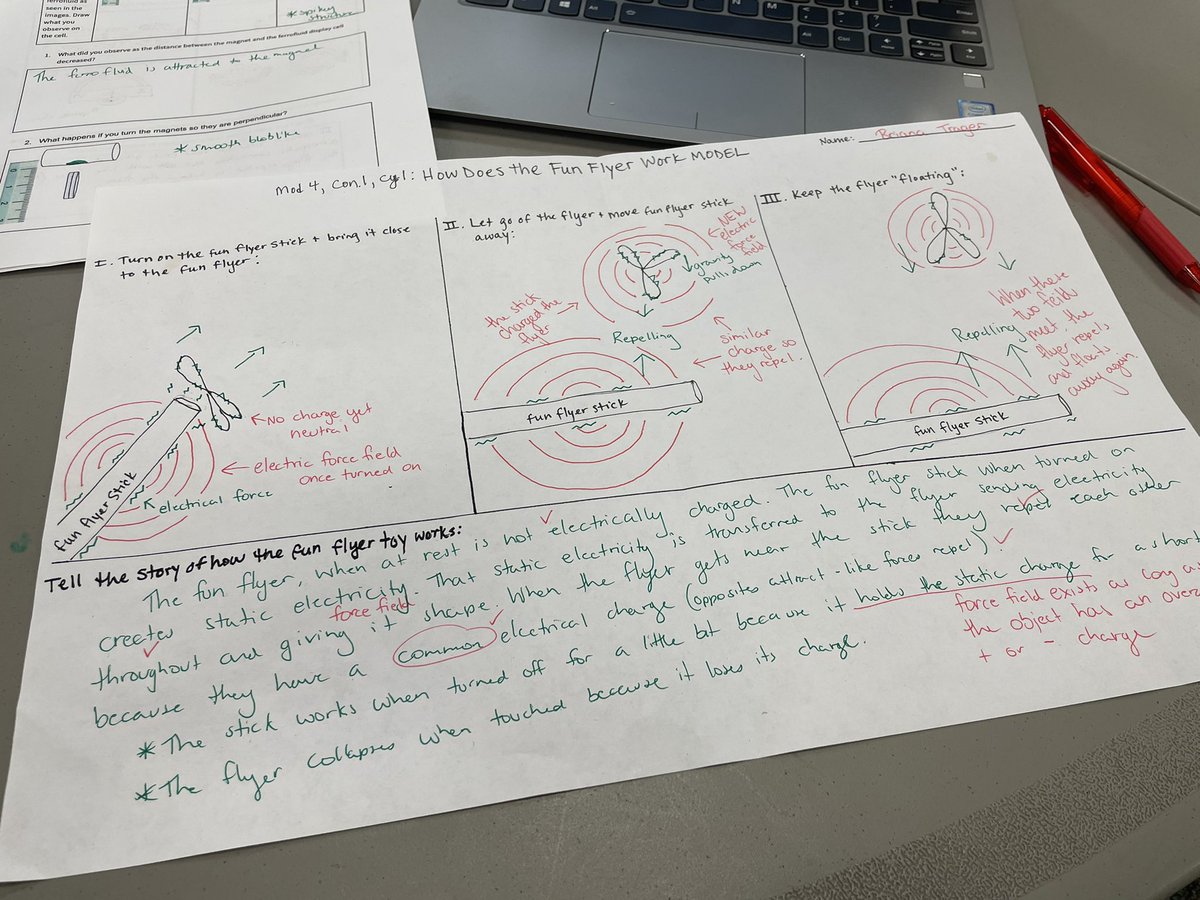 ferrofluid as
seen in the
images. Draw
what you
observe on
the cell.
* spikey
structure
1. What did you observe as the distance between the magnet and the ferrofluid display cell
decreased?
The ferrofluid is attracted to the magnet
2. What happens if you turn the magnets so they are perpendicular?
* smooth bloblike
Name: Briana Trager
Mod 4, Con.1, Cyc1: How Does the Fun Flyer Work MODEL
I. Turn on the fun flyer stick + bring it close
to the fun flyer:
No charge yet
neutral
electric force field
once turned on
electrical force
fun flyer stick
II. Let go of the flyer + move fun flyer stick
away:
NEW
electric
force
field
gravity
pulls down
the stick
charged the
flyer
Repelling
similar
charge so
they repel.
fun flyer stick
III. Keep the flyer "floating":
Repelling
When these
two feild
meet, the
flyer repels
and floats
away again.
fun flyer stick
Tell the story of how the fun flyer toy works:
The fun flyer, when at rest is not electrically charged. The fun flyer stick when turned on
creates static electricity. That static electricity is transferred to the flyer sending electricity
force field
throughout and giving it shape. When the flyer gets near the stick they repel each other
because they have a common electrical charge (opposites attract - like forces repel).
* The stick works when turned off for a little bit because it holds the static charge for a short
* The flyer collapses when touched because it loses its charge.
force field exists as long as
the object has an
+ or - charge